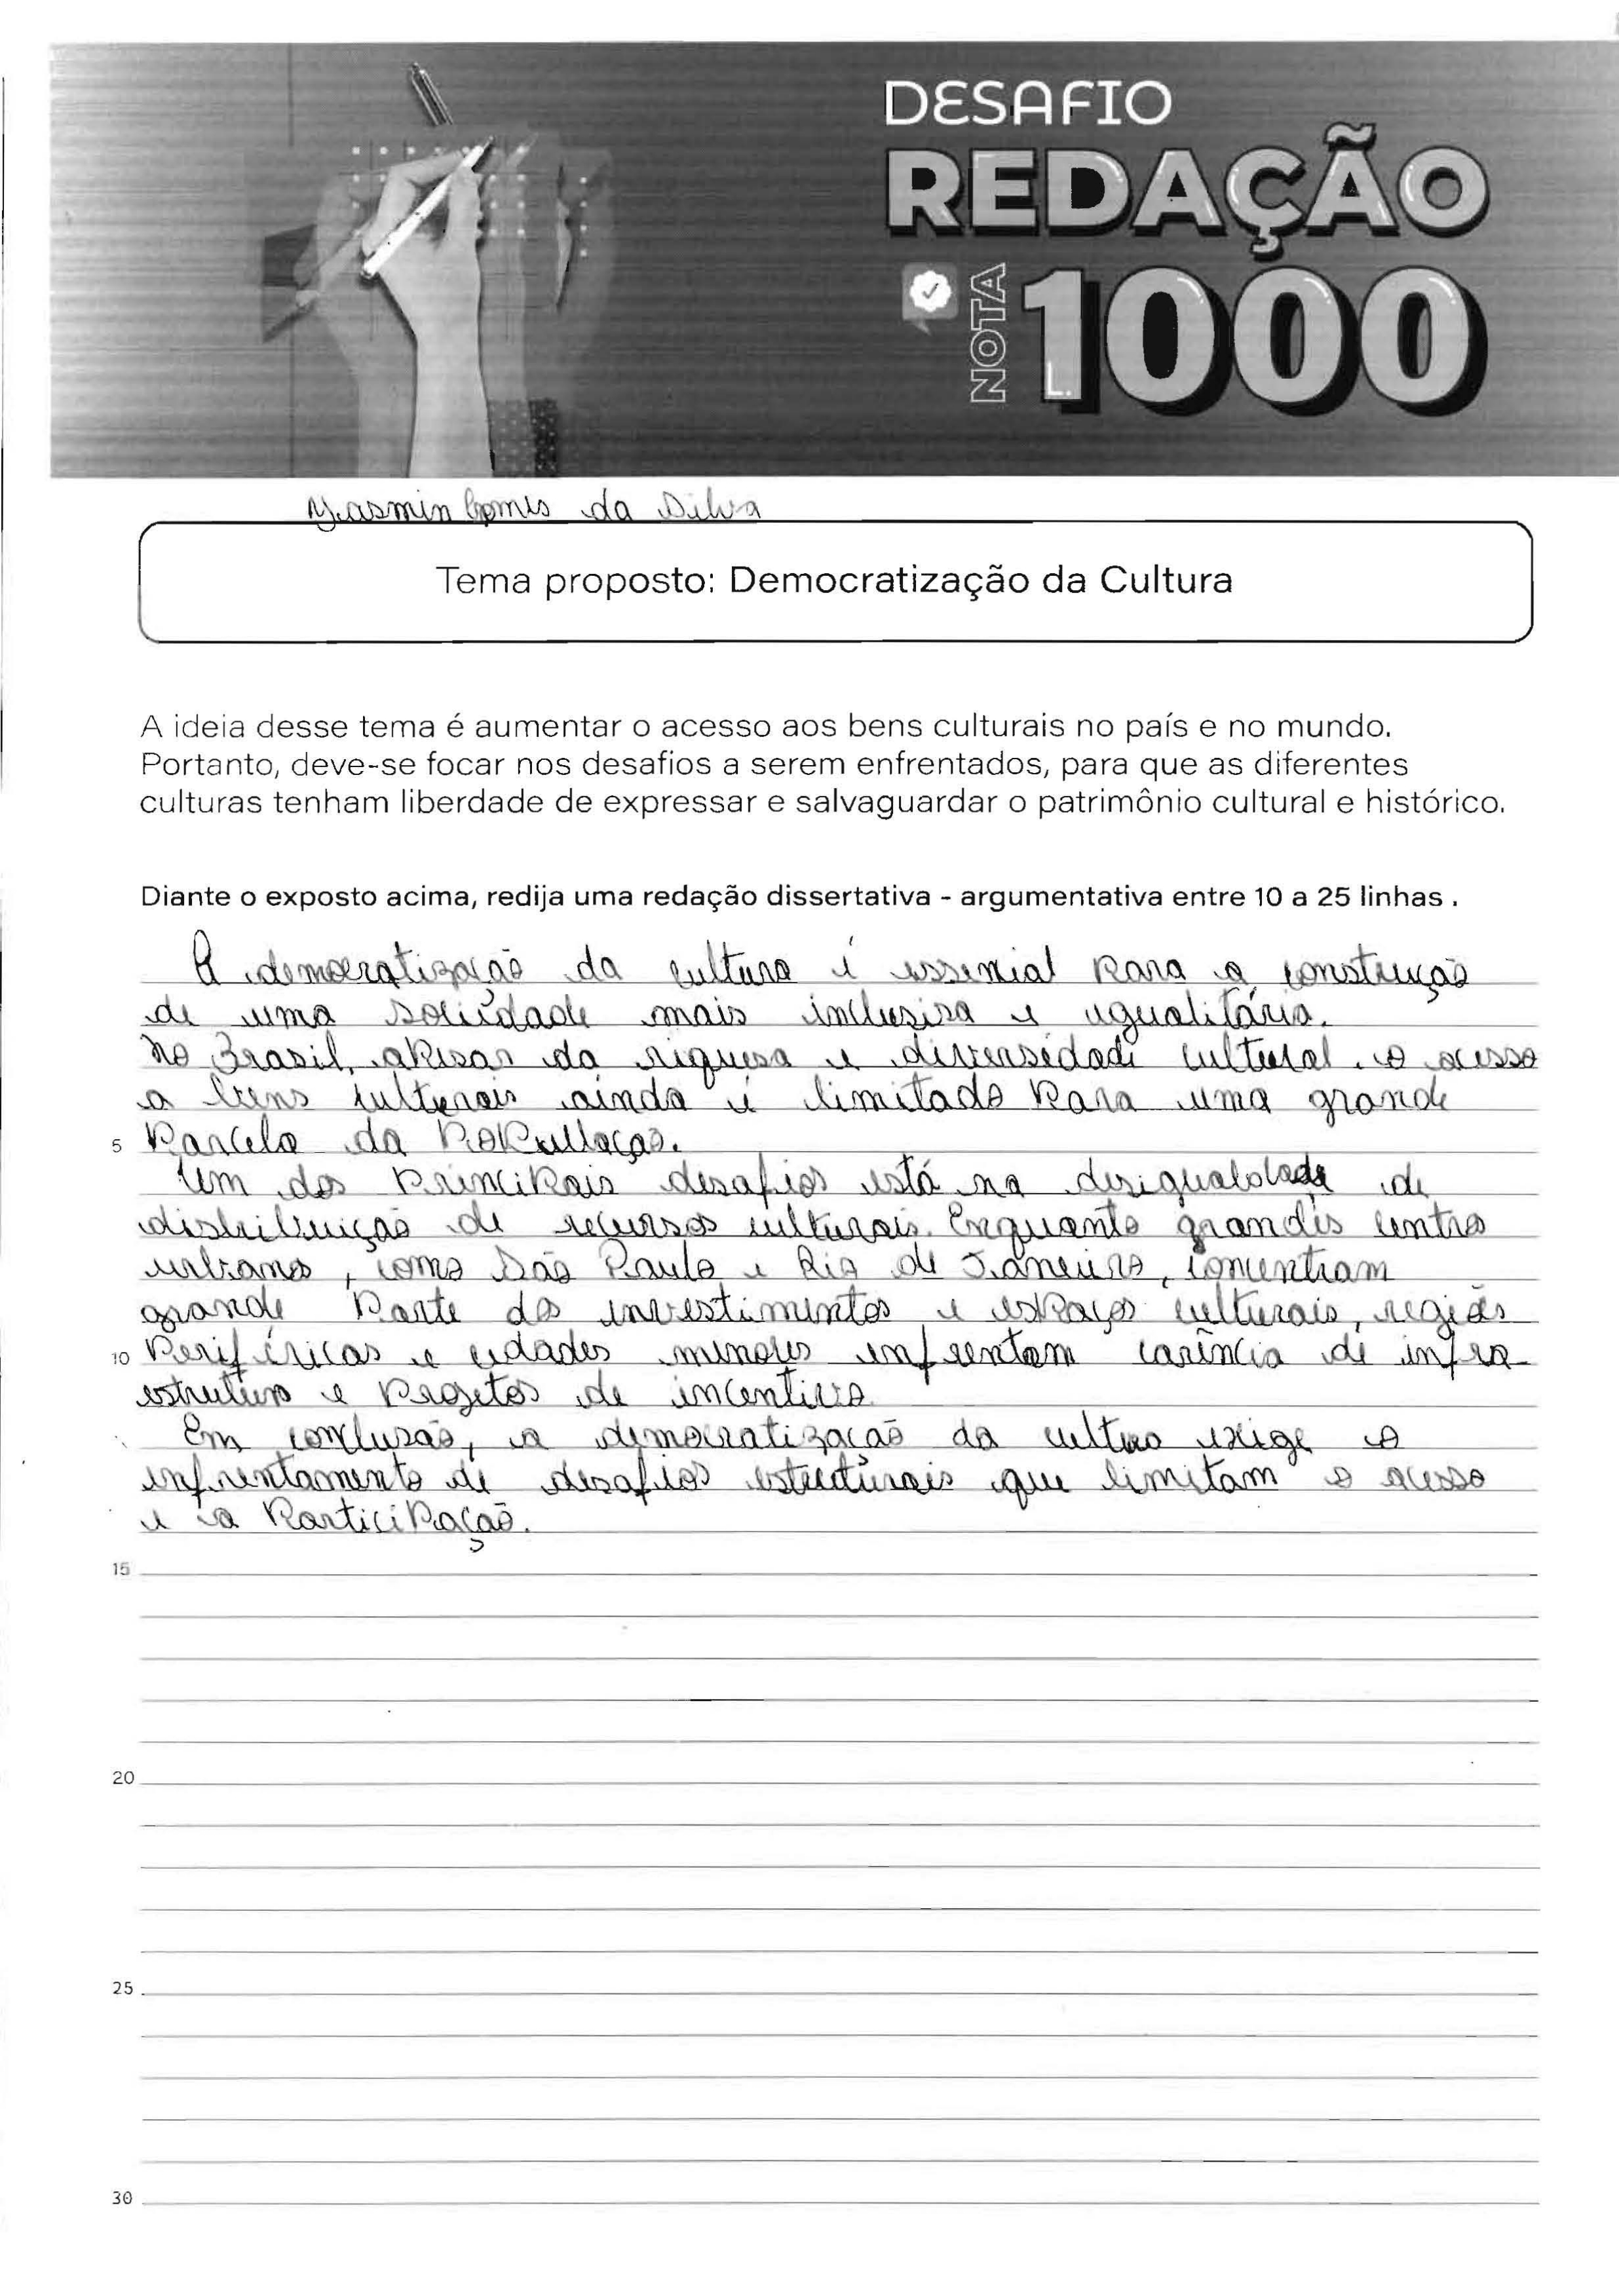 DESAFIO
REDAÇÃO
NOTA 1000
Yasmin Gomes da Silva
Tema proposto: Democratização da Cultura
A ideia desse tema é aumentar o acesso aos bens culturais no país e no mundo.
Portanto, deve-se focar nos desafios a serem enfrentados, para que as diferentes
culturas tenham liberdade de expressar e salvaguardar o patrimônio cultural e histórico.
Diante o exposto acima, redija uma redação dissertativa - argumentativa entre 10 a 25 linhas .
A democratização da cultura é essencial para a construção
de uma sociedade mais inclusiva e ugualitária.
No Brasil, apesar da riquesa e diversedade cultural. o acesso
a bens culturais ainda é limitado para uma grande
5 parcela da popullação.
Um dos principais desafios está na desigualdade de
distribuição de recursos culturais. Enquanto grandes centros
urbanos, como São Paulo e Rio de Janeiro, concentram
grande parte dos investimentos e espaços culturais, regiões
10 periféricas e cidades menores enfrentam carência de infra-
estrutura e projetos de incentivo
Em conclusão, a democratização da cultura exige o
enfrentamento de desafios estruturais que limitam o acesso
e a participação.
15
20
25
30